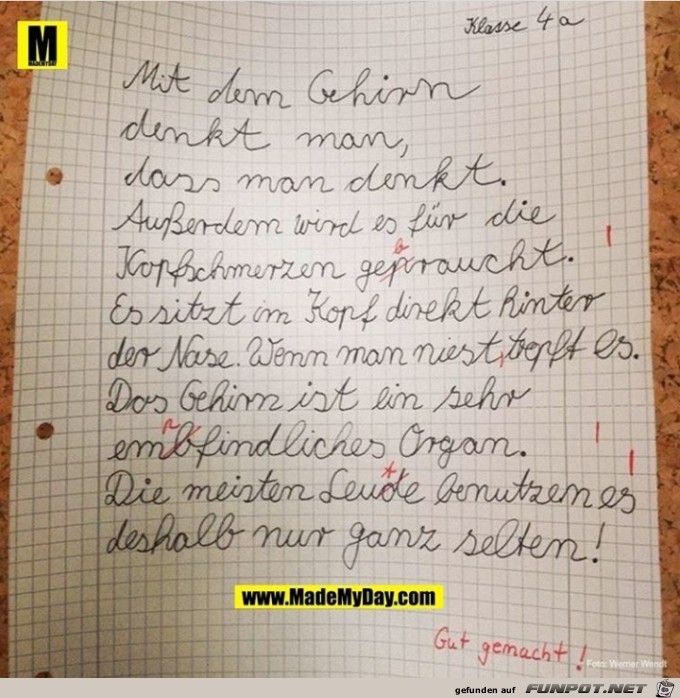 Klasse 4a
M
MADEMYDAY
Mit dem Gehirn
denkt man,
dass man denkt.
Außerdem wird es für die
Kopfschmerzen gepraucht.
b
Es sitzt im Kopf direkt hinter
der Nase. Wenn man niest, tropft es.
Das Gehirn ist ein sehr
embfindliches Organ.
p
Die meisten Leude benutzen es
t
deshalb nur ganz selten!
www.MadeMyDay.com
Gut gemacht!
Foto: Werner Wendt
gefunden auf FUNPOT.NET